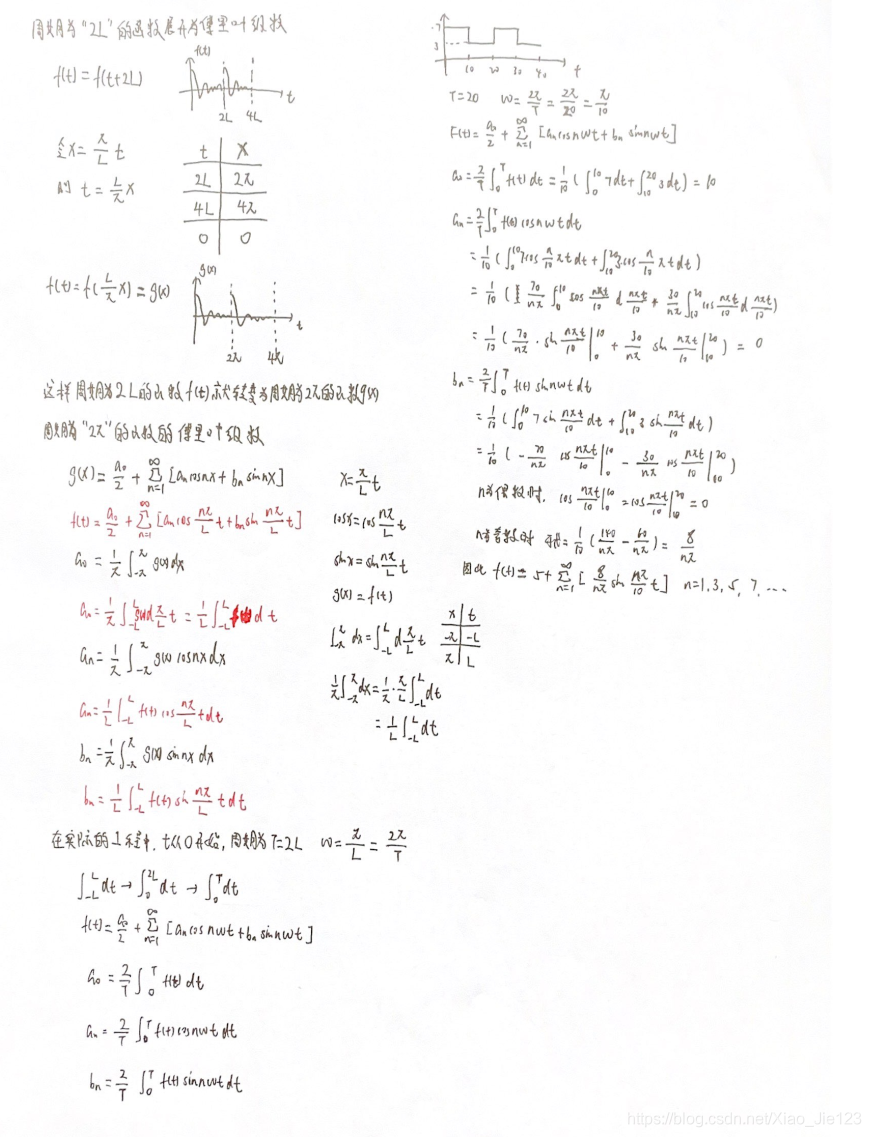 周期为"2L"的函数展开为傅里叶级数
f(t)=f(t+2L)
f(t)
t
2L 4L
令x=π/L t
则 t=L/π x
t x
2L 2π
4L 4π
0 0
f(t)=f(L/π x)=g(x)
g(x)
t
2π 4π
这样周期为2L的函数f(t)就转变为周期为2π的函数g(x)
周期为"2π"的函数的傅里叶级数
g(x)=a₀/2+∑_{n=1}^{∞}[aₙcosnx+bₙsinnx]
f(t)=a₀/2+∑_{n=1}^{∞}[aₙcos nπ/L t+bₙsin nπ/L t]
a₀=1/π∫_{-π}^{π}g(x)dx
a₀=1/π∫_{-L}^{L}g(x)dπ/L t=1/L∫_{-L}^{L}f(t)dt
aₙ=1/π∫_{-π}^{π}g(x)cosnxdx
aₙ=1/L∫_{-L}^{L}f(t)cos nπ/L tdt
bₙ=1/π∫_{-π}^{π}g(x)sinnxdx
bₙ=1/L∫_{-L}^{L}f(t)sin nπ/L tdt
x=π/L t
cosx=cos nπ/L t
sinx=sin nπ/L t
g(x)=f(t)
∫_{-π}^{π}dx=∫_{-L}^{L}dπ/L t
x t
-π -L
π L
1/π∫_{-π}^{π}dx=1/π·π/L∫_{-L}^{L}dt
=1/L∫_{-L}^{L}dt
在实际的工程中, t从0开始, 周期为T=2L ω=π/L=2π/T
∫_{-L}^{L}dt→∫_{0}^{2L}dt→∫_{0}^{T}dt
f(t)=a₀/2+∑_{n=1}^{∞}[aₙcosnωt+bₙsinnωt]
a₀=2/T∫_{0}^{T}f(t)dt
aₙ=2/T∫_{0}^{T}f(t)cosnωtdt
bₙ=2/T∫_{0}^{T}f(t)sinnωtdt
7
3
10 20 30 40 t
T=20 ω=2π/T=2π/20=π/10
F(t)=a₀/2+∑_{n=1}^{∞}[aₙcosnωt+bₙsinnωt]
a₀=2/T∫_{0}^{T}f(t)dt=1/10(∫_{0}^{10}7dt+∫_{10}^{20}3dt)=10
aₙ=2/T∫_{0}^{T}f(t)cosnωtdt
=1/10(∫_{0}^{10}7cos n/10 πtdt+∫_{10}^{20}3cos n/10 πtdt)
=1/10(70/nπ∫_{0}^{10}cos nπt/10 d nπt/10+30/nπ∫_{10}^{20}cos nπt/10 d nπt/10)
=1/10(70/nπ·sin nπt/10|_{0}^{10}+30/nπ sin nπt/10|_{10}^{20})=0
bₙ=2/T∫_{0}^{T}f(t)sinnωtdt
=1/10(∫_{0}^{10}7sin nπt/10 dt+∫_{10}^{20}3sin nπt/10 dt)
=1/10(-70/nπ cos nπt/10|_{0}^{10}-30/nπ cos nπt/10|_{10}^{20})
n为偶数时, cos nπt/10|_{0}^{10}=cos nπt/10|_{10}^{20}=0
n为奇数时 原式=1/10(140/nπ-60/nπ)=8/nπ
因此 f(t)=5+∑_{n=1}^{∞}[8/nπ sin nπ/10 t] n=1,3,5,7,…
https://blog.csdn.net/Xiao_Jie123